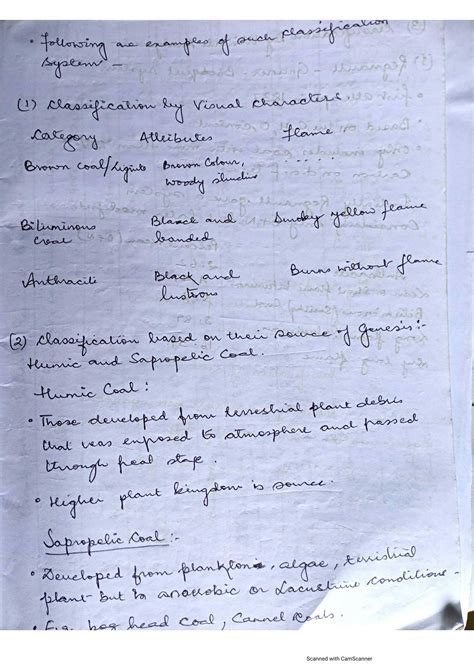 • Following are examples of such classification
system -
(1) Classification by Visual characters.
Category Attributes Flame
Brown coal/Lignite Brown Colour, . . . . . .
woody
Bituminous Black and Smoky yellow flame
coal banded
Anthracite Black and Burns without flame
lustrous
(2) Classification based on their source of Genesis:-
Humic and Sapropelic Coal.
Humic Coal:
• Those developed from terrestrial plant debris
that was exposed to atmosphere and passed
through peat stage.
• Higher plant kingdom is source.
Sapropelic Coal:-
• Developed from planktons, algae, terristrial
plant but in anaerobic or Lacustrine conditions-
• E.g. bog head Coal, Cannel Coals.
Scanned with CamScanner